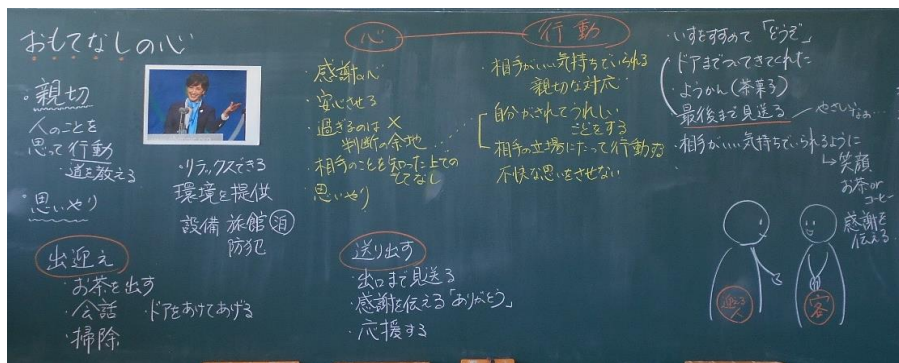 おもてなしの心
・親切
人のことを
思って行動
道を教える
・思いやり
・リラックスできる
環境を提供
設備 旅館 泊
防犯
出迎え
・お茶を出す
・会話 ・ドアをあけてあげる
・掃除
心
・感謝の心
・安心させる
・過ぎるのは×
判断の余地
・相手のことを知った上での
もてなし
・思いやり
送り出す
・出口まで見送る
・感謝を伝える「ありがとう」
・応援する
行動
・相手がいい気持ちでいられる
親切な対応
自分がされてうれしい
ことをする
相手の立場にたって行動する
不快な思いをさせない
・いすをすすめて「どうぞ」
ドアまでついてきてくれた
・ようかん(茶菓子)
最後まで見送る
・相手がいい気持ちでいられるように
笑顔
お茶or
コーヒー
感謝を
伝える
迎える
人
客